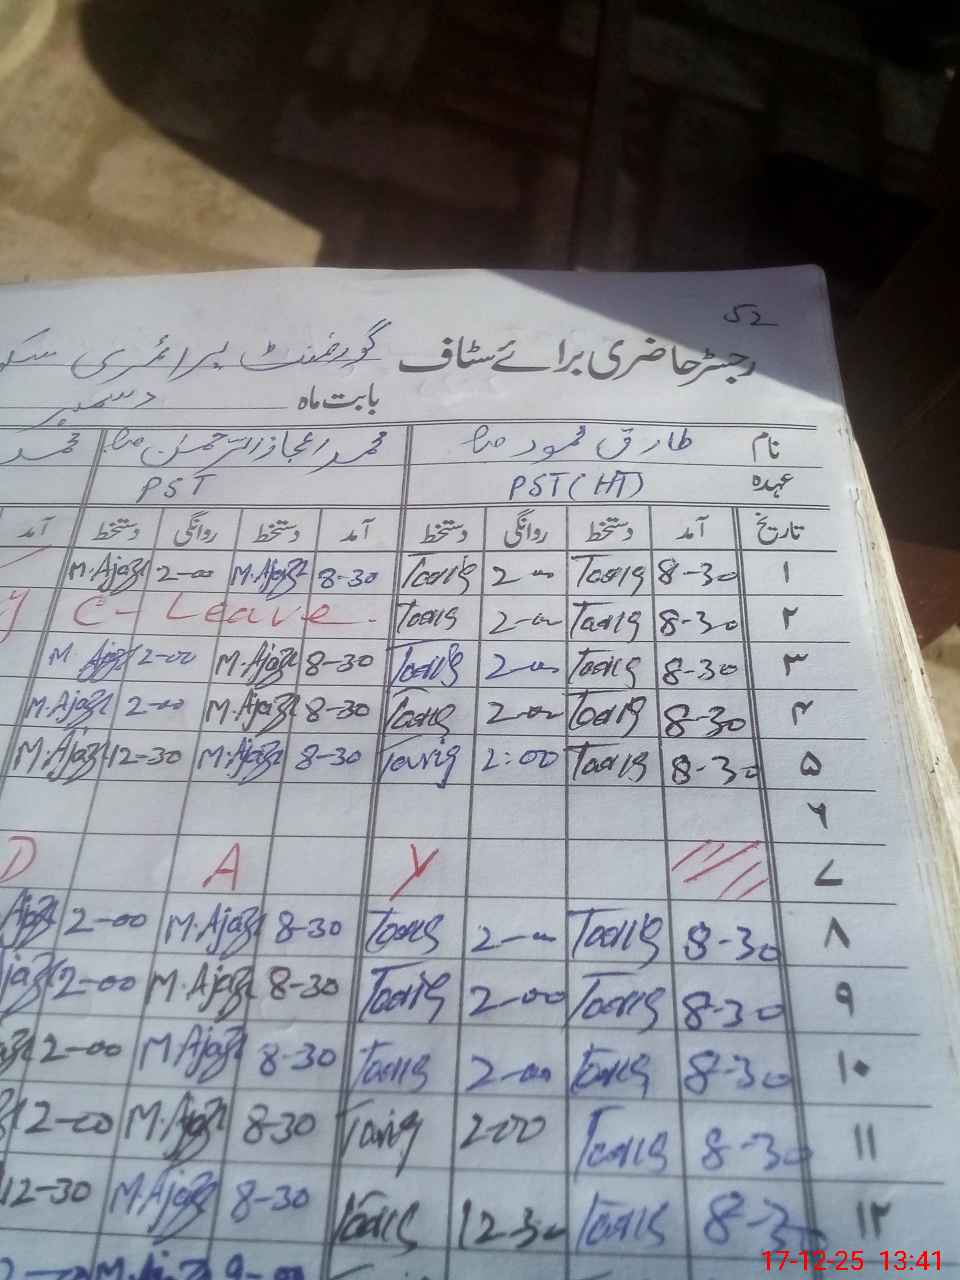 52
رجسٹر حاضری برائے سٹاف گورنمنٹ پرائمری
بابت ماہ دسمبر
نام طارق محمود صاحب محمد اعجاز الرحمن صاحب محمد
عہدہ PST (HT) PST
تاریخ آمد دستخط روانگی دستخط آمد دستخط روانگی دستخط آمد
۱ 8-30 Tariq 2-00 Tariq 8-30 M.Ajaz 2-00 M.Ajaz
۲ 8-30 Tariq 2-00 Tariq C-Leave
۳ 8-30 Tariq 2-00 Tariq 8-30 M.Ajaz 2-00 M.Ajaz
۴ 8-30 Tariq 2-00 Tariq 8-30 M.Ajaz 2-00 M.Ajaz
۵ 8-30 Tariq 2:00 Tariq 8-30 M.Ajaz 12-30 M.Ajaz
۶
۷ Y A D
۸ 8-30 Tariq 2-00 Tariq 8-30 M.Ajaz 2-00 Ajaz
۹ 8-30 Tariq 2-00 Tariq 8-30 M.Ajaz 2-00 Ajaz
۱۰ 8-30 Tariq 2-00 Tariq 8-30 M.Ajaz 2-00
۱۱ 8-30 Tariq 2-00 Tariq 8-30 M.Ajaz 2-00
۱۲ 8-30 Tariq 12-30 Tariq 8-30 M.Ajaz 12-30
17-12-25 13:41